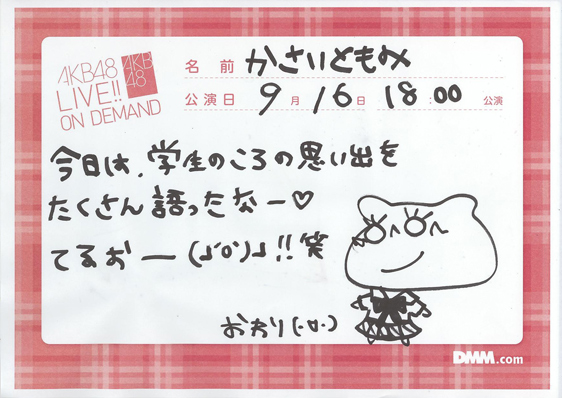 AKB48
LIVE!!
ON DEMAND
AKB
48
名前 かさいともみ
公演日 9月16日 18:00 公演
今日は、学生のころの思い出を
たくさん語ったなー♡
てるおー(」'O')」!!笑
おわり(・o・)
DMM.com